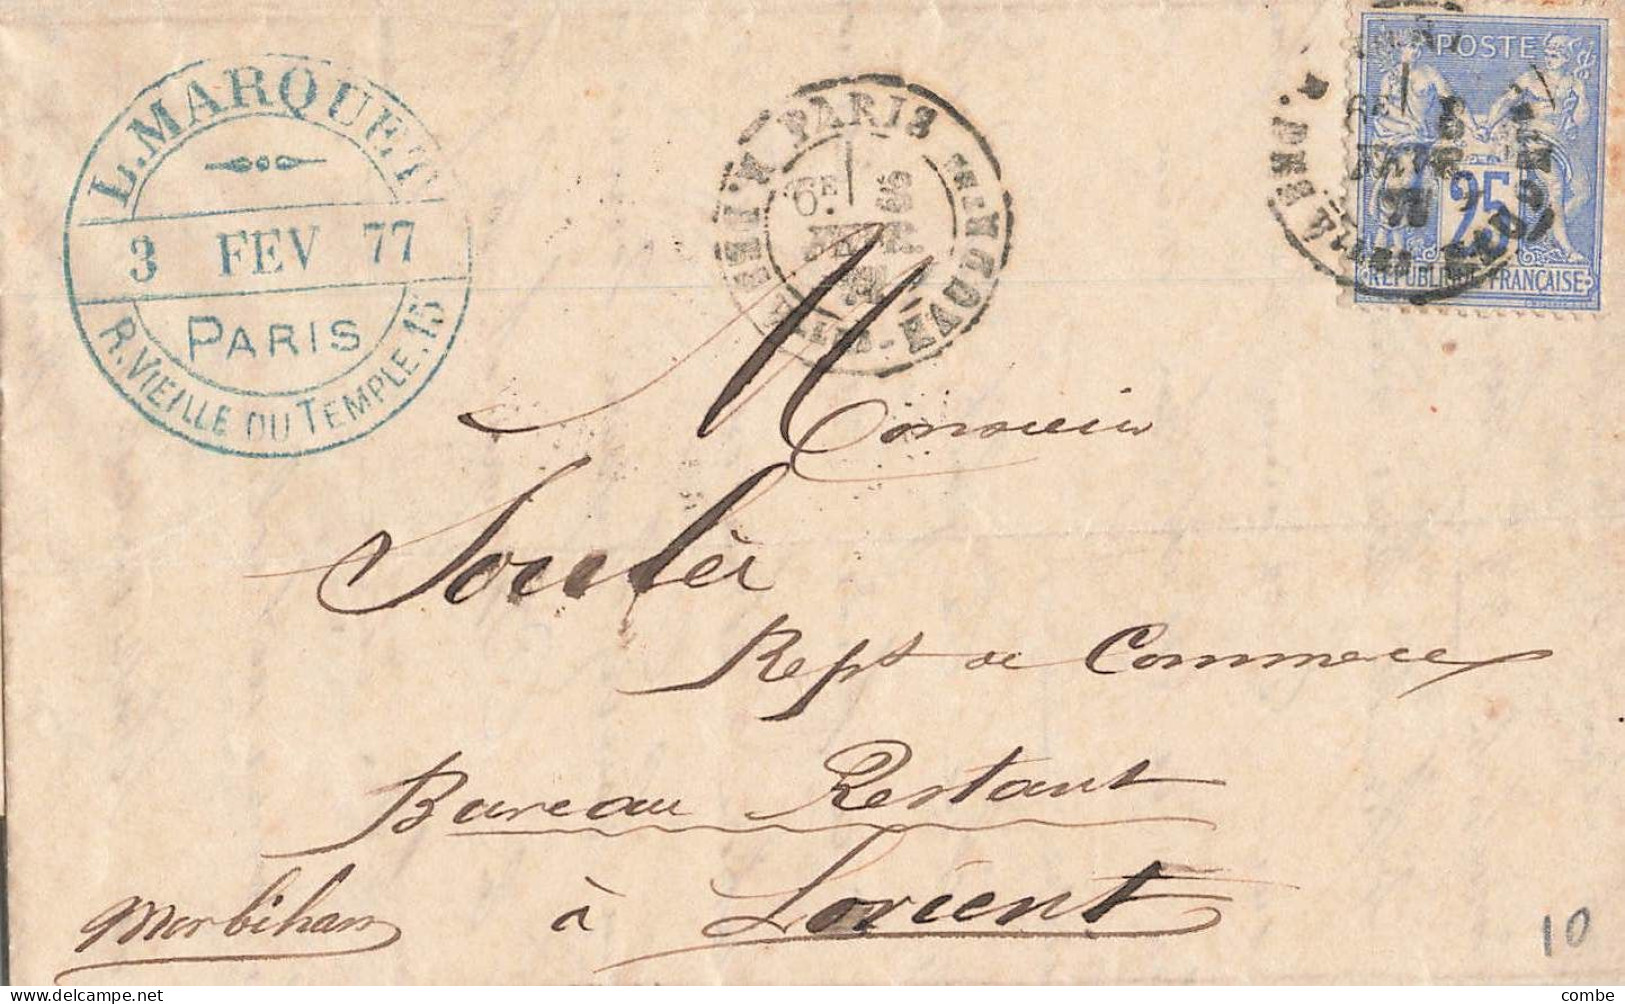 L. MARQUET
3 FEV 77
PARIS
R. VIEILLE DU TEMPLE. 15
PARIS
6E
POSTE
25
REPUBLIQUE FRANÇAISE
Monsieur
Soulér
Rept de Commerce
Bureau Restant
à Lorient
Morbihan
10
combe